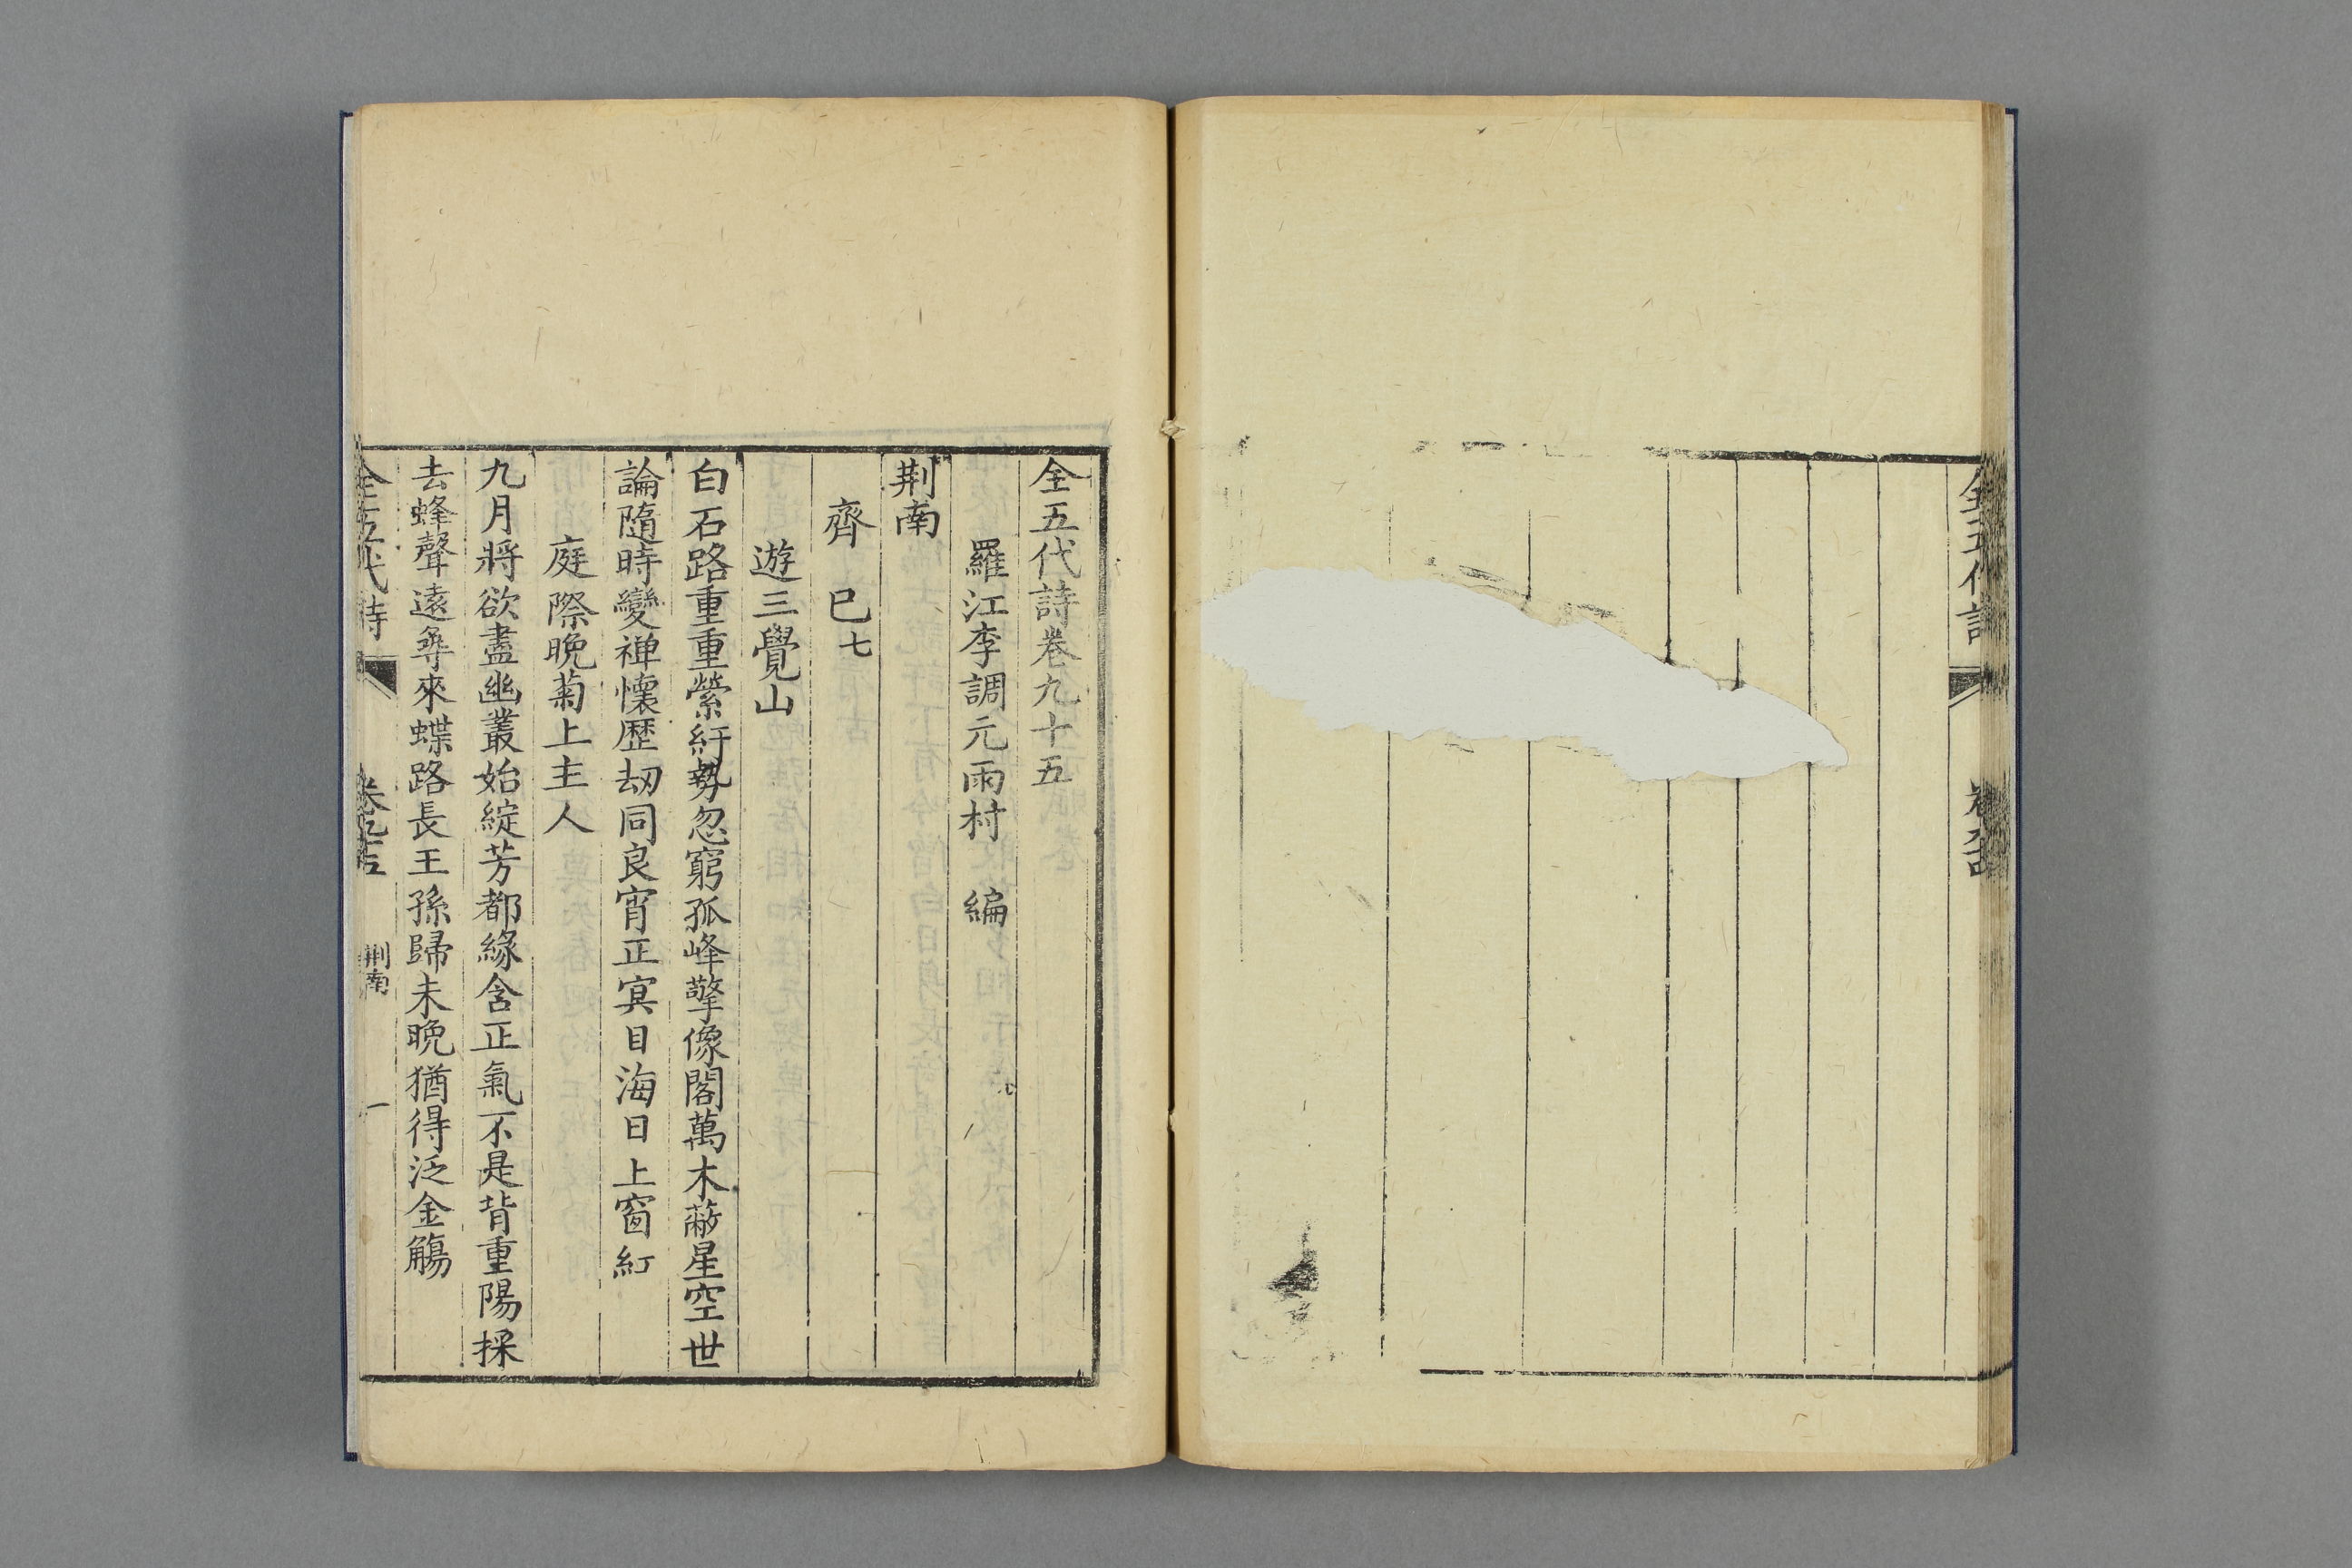 全五代詩
全五代詩卷九十五
羅江李調元雨村 編
荆南
齊己七
遊三覺山
白石路重重縈紆勢忽窮孤峰擎像閣萬木蔽星空世
論隨時變禅懷歴刼同良宵正寞目海日上窗紅
庭際晚菊上主人
九月將欲盡幽叢始綻芳都緣含正氣不是背重陽採
去蜂聲遠尋來蝶路長王孫歸未晚猶得泛金觴
全五代詩 卷九十五 荆南 一